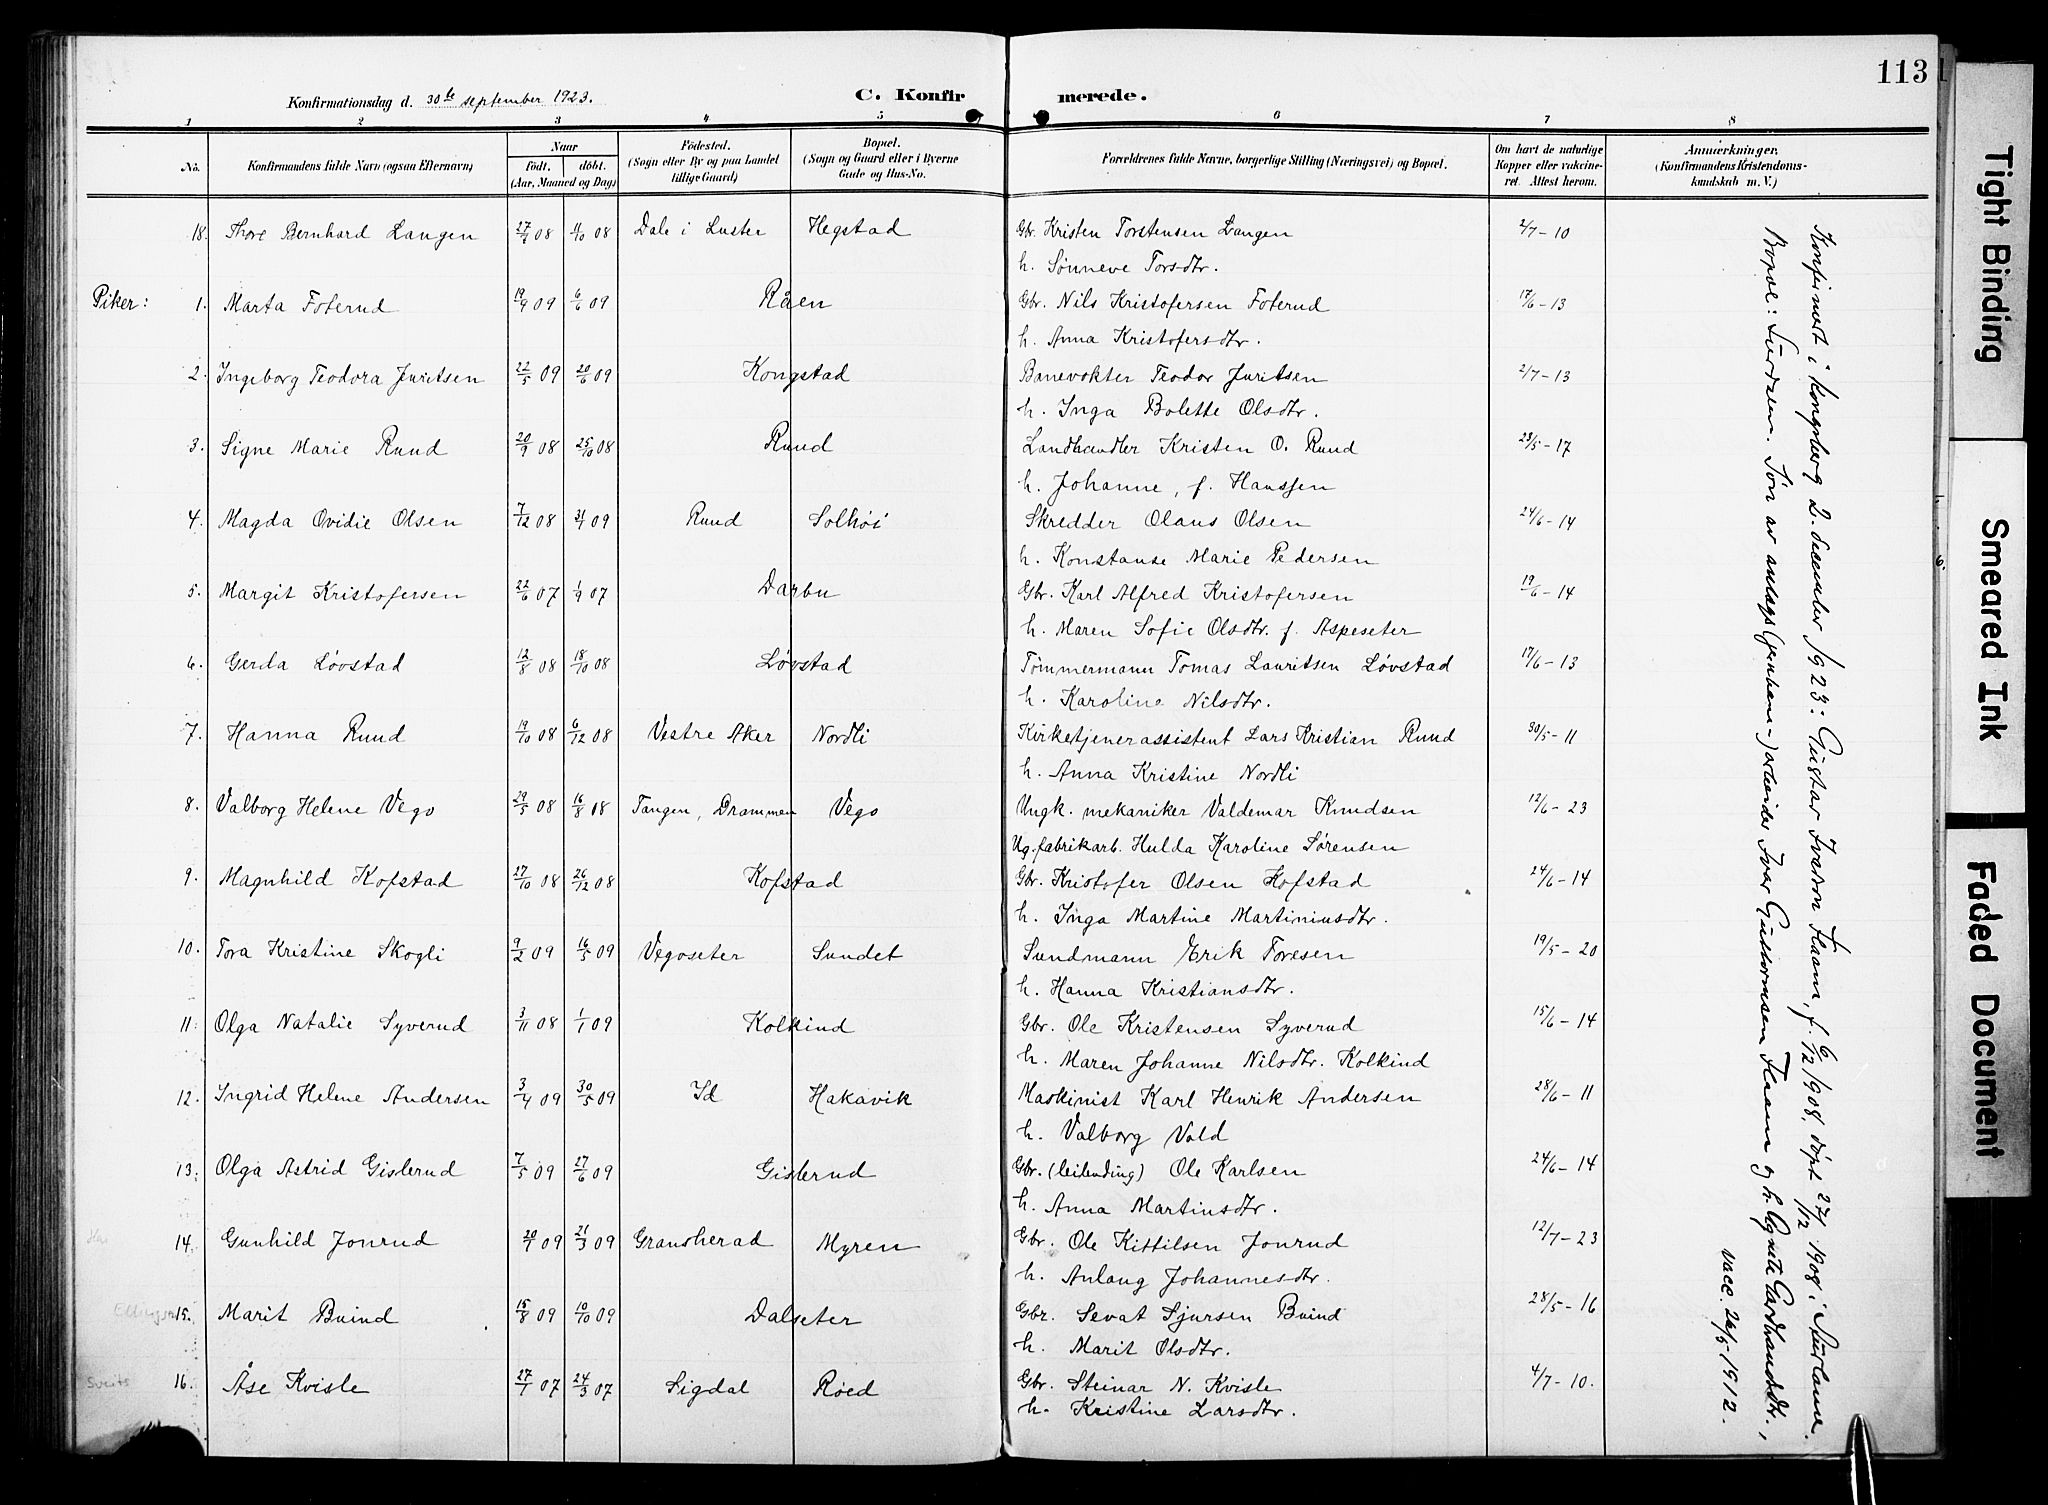 113
Konfirmationsdag d. 30te september 1923. C. Konfirmerede.
1 2 3 4 5 6 7 8
No. Konfirmandens fulde Navn (ogsaa Efternavn) Naar født. døbt. (Aar, Maaned og Dag) Fødested. (Sogn eller By og paa Landet tillige Gaard) Bopæl. (Sogn og Gaard eller i Byerne Gade og Hus-No. Forældrenes fulde Navne, borgerlige Stilling (Næringsvei) og Bopæl. Om havt de naturlige Kopper eller vaccineret. Attest herom. Anmærkninger. (Konfirmandens Kristendomskundskab m. V.)
18. Thore Bernhard Langen 27/9 08 11/10 08 Dale i Luster Hegstad Gbr. Kristen Torstensen Langen 2/7-10
h. Sønneve Torsdtr.
Piker: 1. Marta Foterud 19/4 09 6/6 09 Råen Gbr. Nils Kristofersen Foterud 17/6-13
h. Anna Kristofersdtr.
2. Ingeborg Teodora Juritsen 22/5 09 20/6 09 Kongstad Banevokter Teodor Juritsen 2/7-13
h. Inga Bolette Olsdtr.
3. Signe Marie Ruud 20/9 08 25/10 08 Ruud Landhandler Kristen O. Ruud 23/5-17
h. Johanne, f. Hanssen
4. Magda Ovidie Olsen 7/12 08 31/1 09 Ruud Solhøi Skredder Olaus Olsen 24/6-14
h. Konstanse Marie Pedersen
5. Margit Kristofersen 22/6 07 1/9 07 Darbu Gbr. Karl Alfred Kristofersen 19/6-14
h. Maren Sofie Olsdtr. f. Aspeseter
6. Gerda Løvstad 12/8 08 18/10 08 Løvstad Tømmermann Tomas Lauritsen Løvstad 17/6-13
h. Karoline Nilsdtr.
7. Hanna Ruud 19/10 08 6/12 08 Vestre Aker Nordli Kirketjenerassistent Lars Kristian Ruud 30/5-11
h. Anna Kristine Nordli
8. Valborg Helene Vego 29/5 08 16/8 08 Tangen, Drammen Vego Ungk. mekaniker Valdemar Knudsen 12/6-23
Ug. fabrikarb. Hulda Karoline Sørensen
9. Magnhild Kofstad 27/10 08 26/12 08 Kofstad Gbr. Kristofer Olsen Kofstad 24/6-14
h. Inga Martine Martiniusdtr.
10. Tora Kristine Skogli 9/2 09 16/5 09 Vegoseter Sundet Sundmann Erik Toresen 19/5-20
h. Hanna Kristiansdtr.
11. Olga Natalie Syverud 3/11 08 1/1 09 Kolkind Gbr. Ole Kristensen Syverud 15/6-14
h. Maren Johanne Nilsdtr. Kolkind
12. Ingrid Helene Andersen 3/4 09 30/5 09 Id Hakavik Maskinist Karl Henrik Andersen 28/6-11
h. Valborg Vold
13. Olga Astrid Gislerud 7/5 09 27/6 09 Gislerud Gbr. (leilending) Ole Karlsen 24/6-14
h. Anna Martinsdtr.
14. Gunhild Jonrud 20/1 09 21/3 09 Gransherad Myren Gbr. Ole Kittilsen Jonrud 12/7-23
h. Anlaug Johannesdtr.
15. Marit Buind 15/8 09 10/10 09 Dalseter Gbr. Sevat Sjursen Buind 28/5-16
h. Marit Olsdtr.
16. Åse Kvisle 27/1 07 24/3 07 Sigdal Røed Gbr. Steinar N. Kvisle 4/7-10.
h. Kristine Larsdtr.
Konfirmert i Kongsberg 2. desember 1923: Gustav Ivarson Flaam, f. 6/12 1908, døpt 27/12 1908 i Aurland.
Bopæl: Lurdalen. Søn av anlægs(jernbane-)arbeider Ivar Guttormsen Flaam og h. Agnete Gardhamdtr.,
vacc. 26/5-1912.
Tight Binding
Smeared Ink
Faded Document